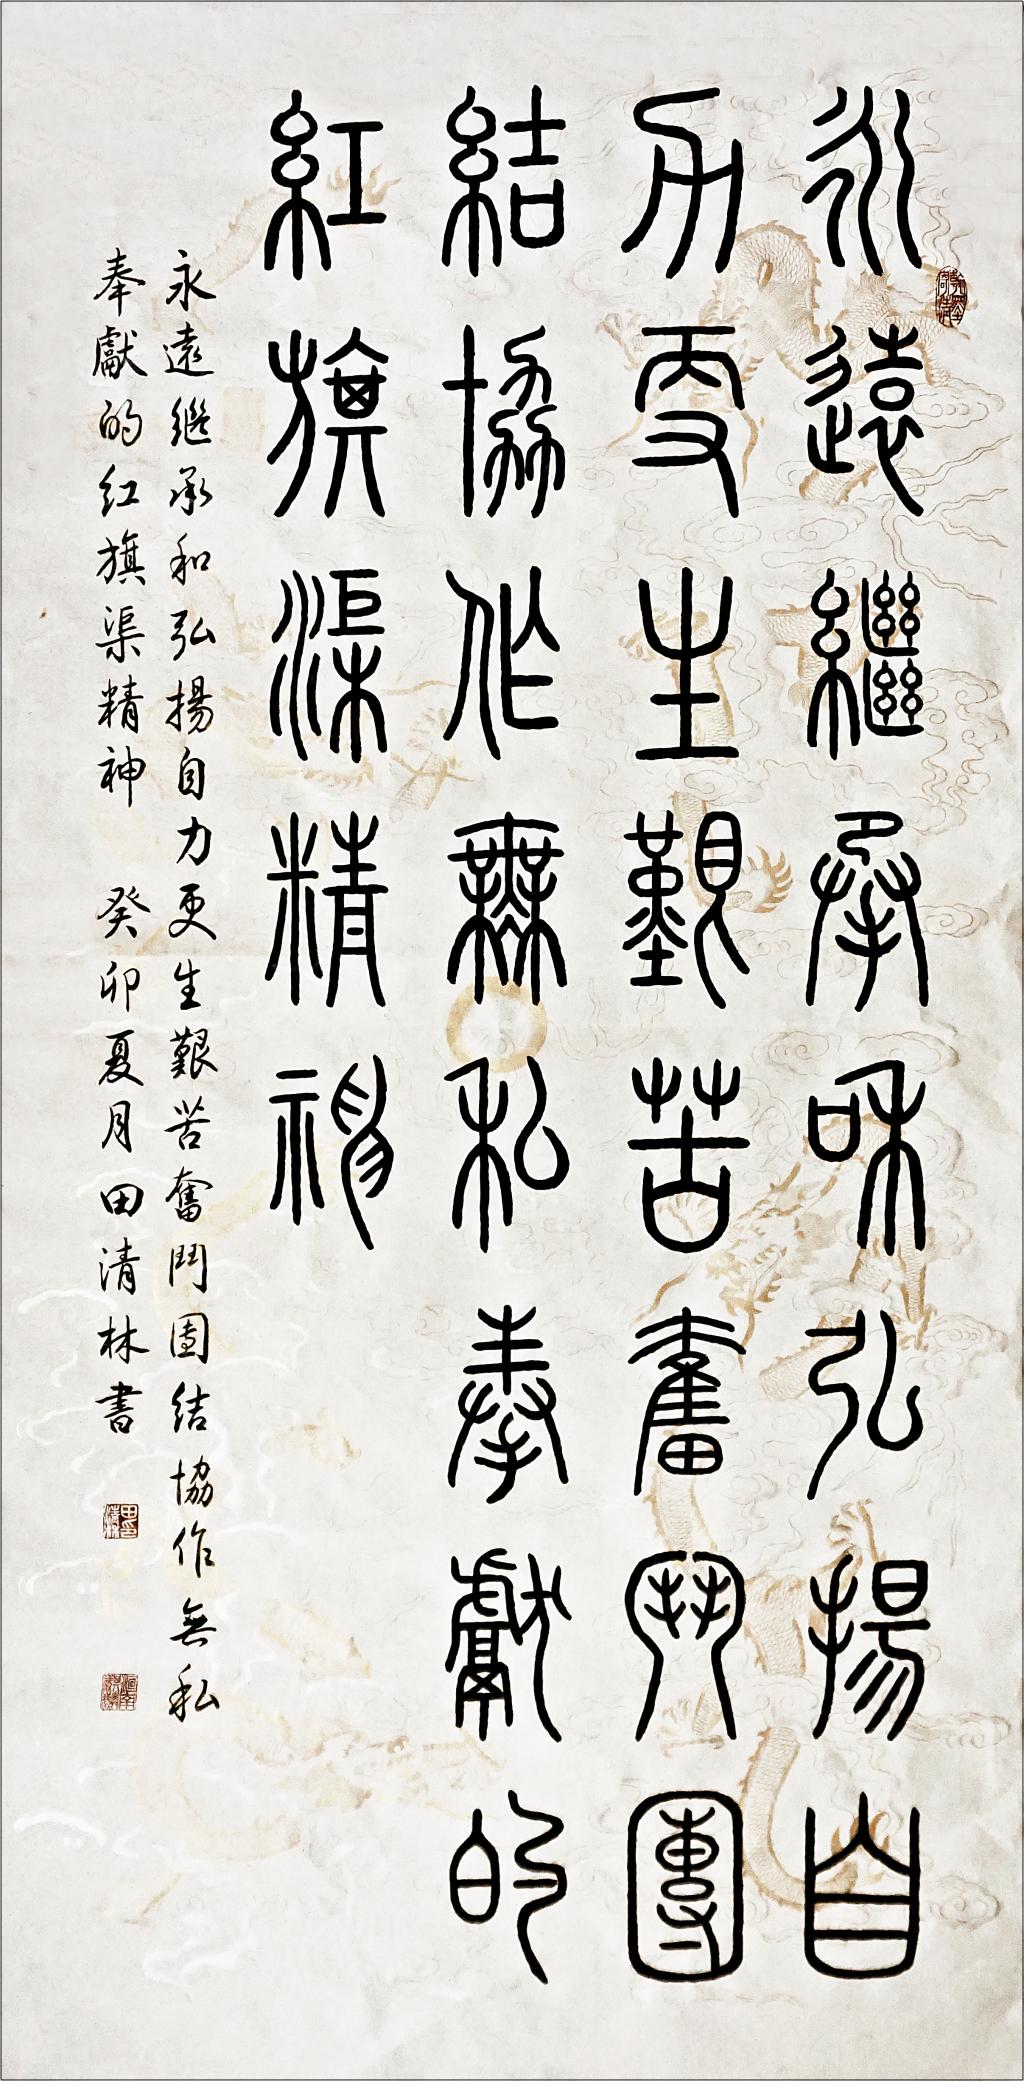 永遠繼承和弘揚自
力更生艱苦奮鬥團
結協作無私奉獻的
紅旗渠精神
永遠继承和弘揚自力更生艱苦奮鬥團结協作無私
奉獻的红旗渠精神 癸卯夏月田清林書